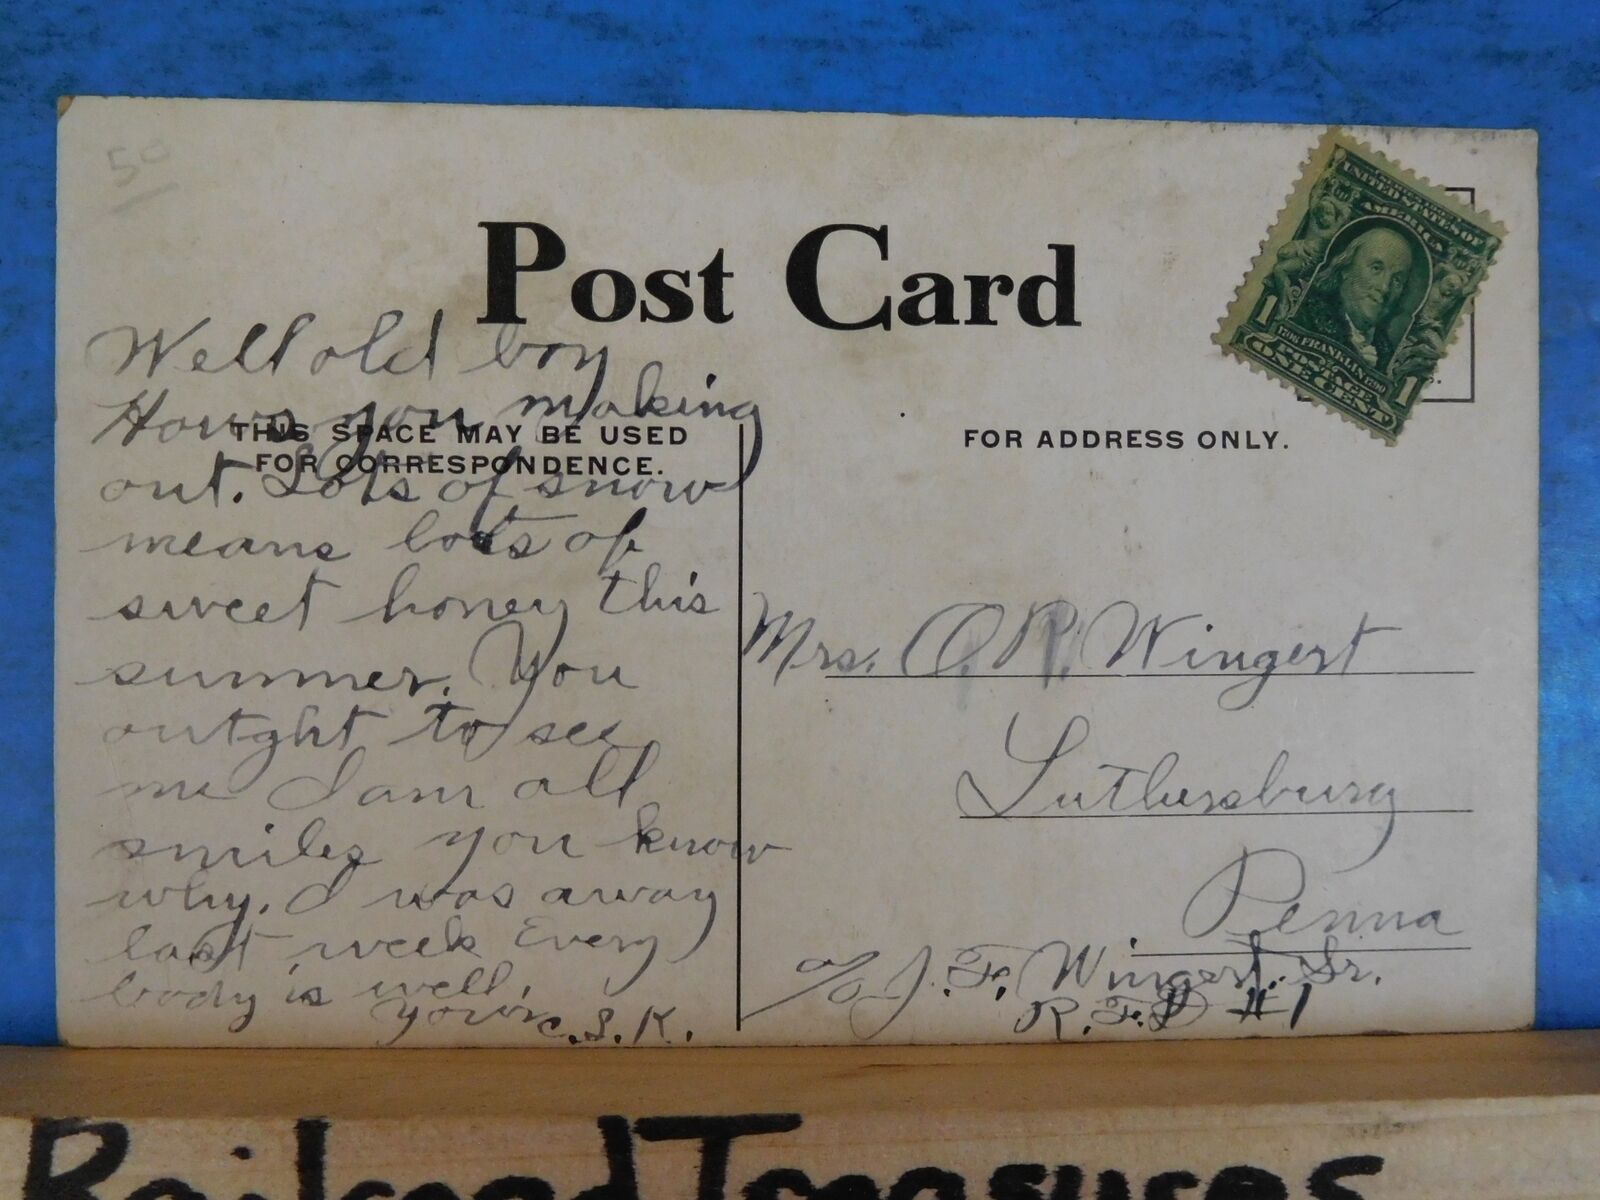 50
Post Card
UNITED STATES OF
AMERICA
1
1706 FRANKLIN 1790
POSTAGE
ONE CENT
1
THIS SPACE MAY BE USED
FOR CORRESPONDENCE.
FOR ADDRESS ONLY.
Well old boy
Hows you making
out. Lots of snow
means lots of
sweet honey this
summer. You
outght to see
me I am all
smiles you know
why. I was away
last week Every
body is well.
Yours C.S.K.
Mrs. O. R. Wingert
Luthersburg
Penna
c/o J. F. Wingert. Sr.
R.F.D #1
Railroad Treasures